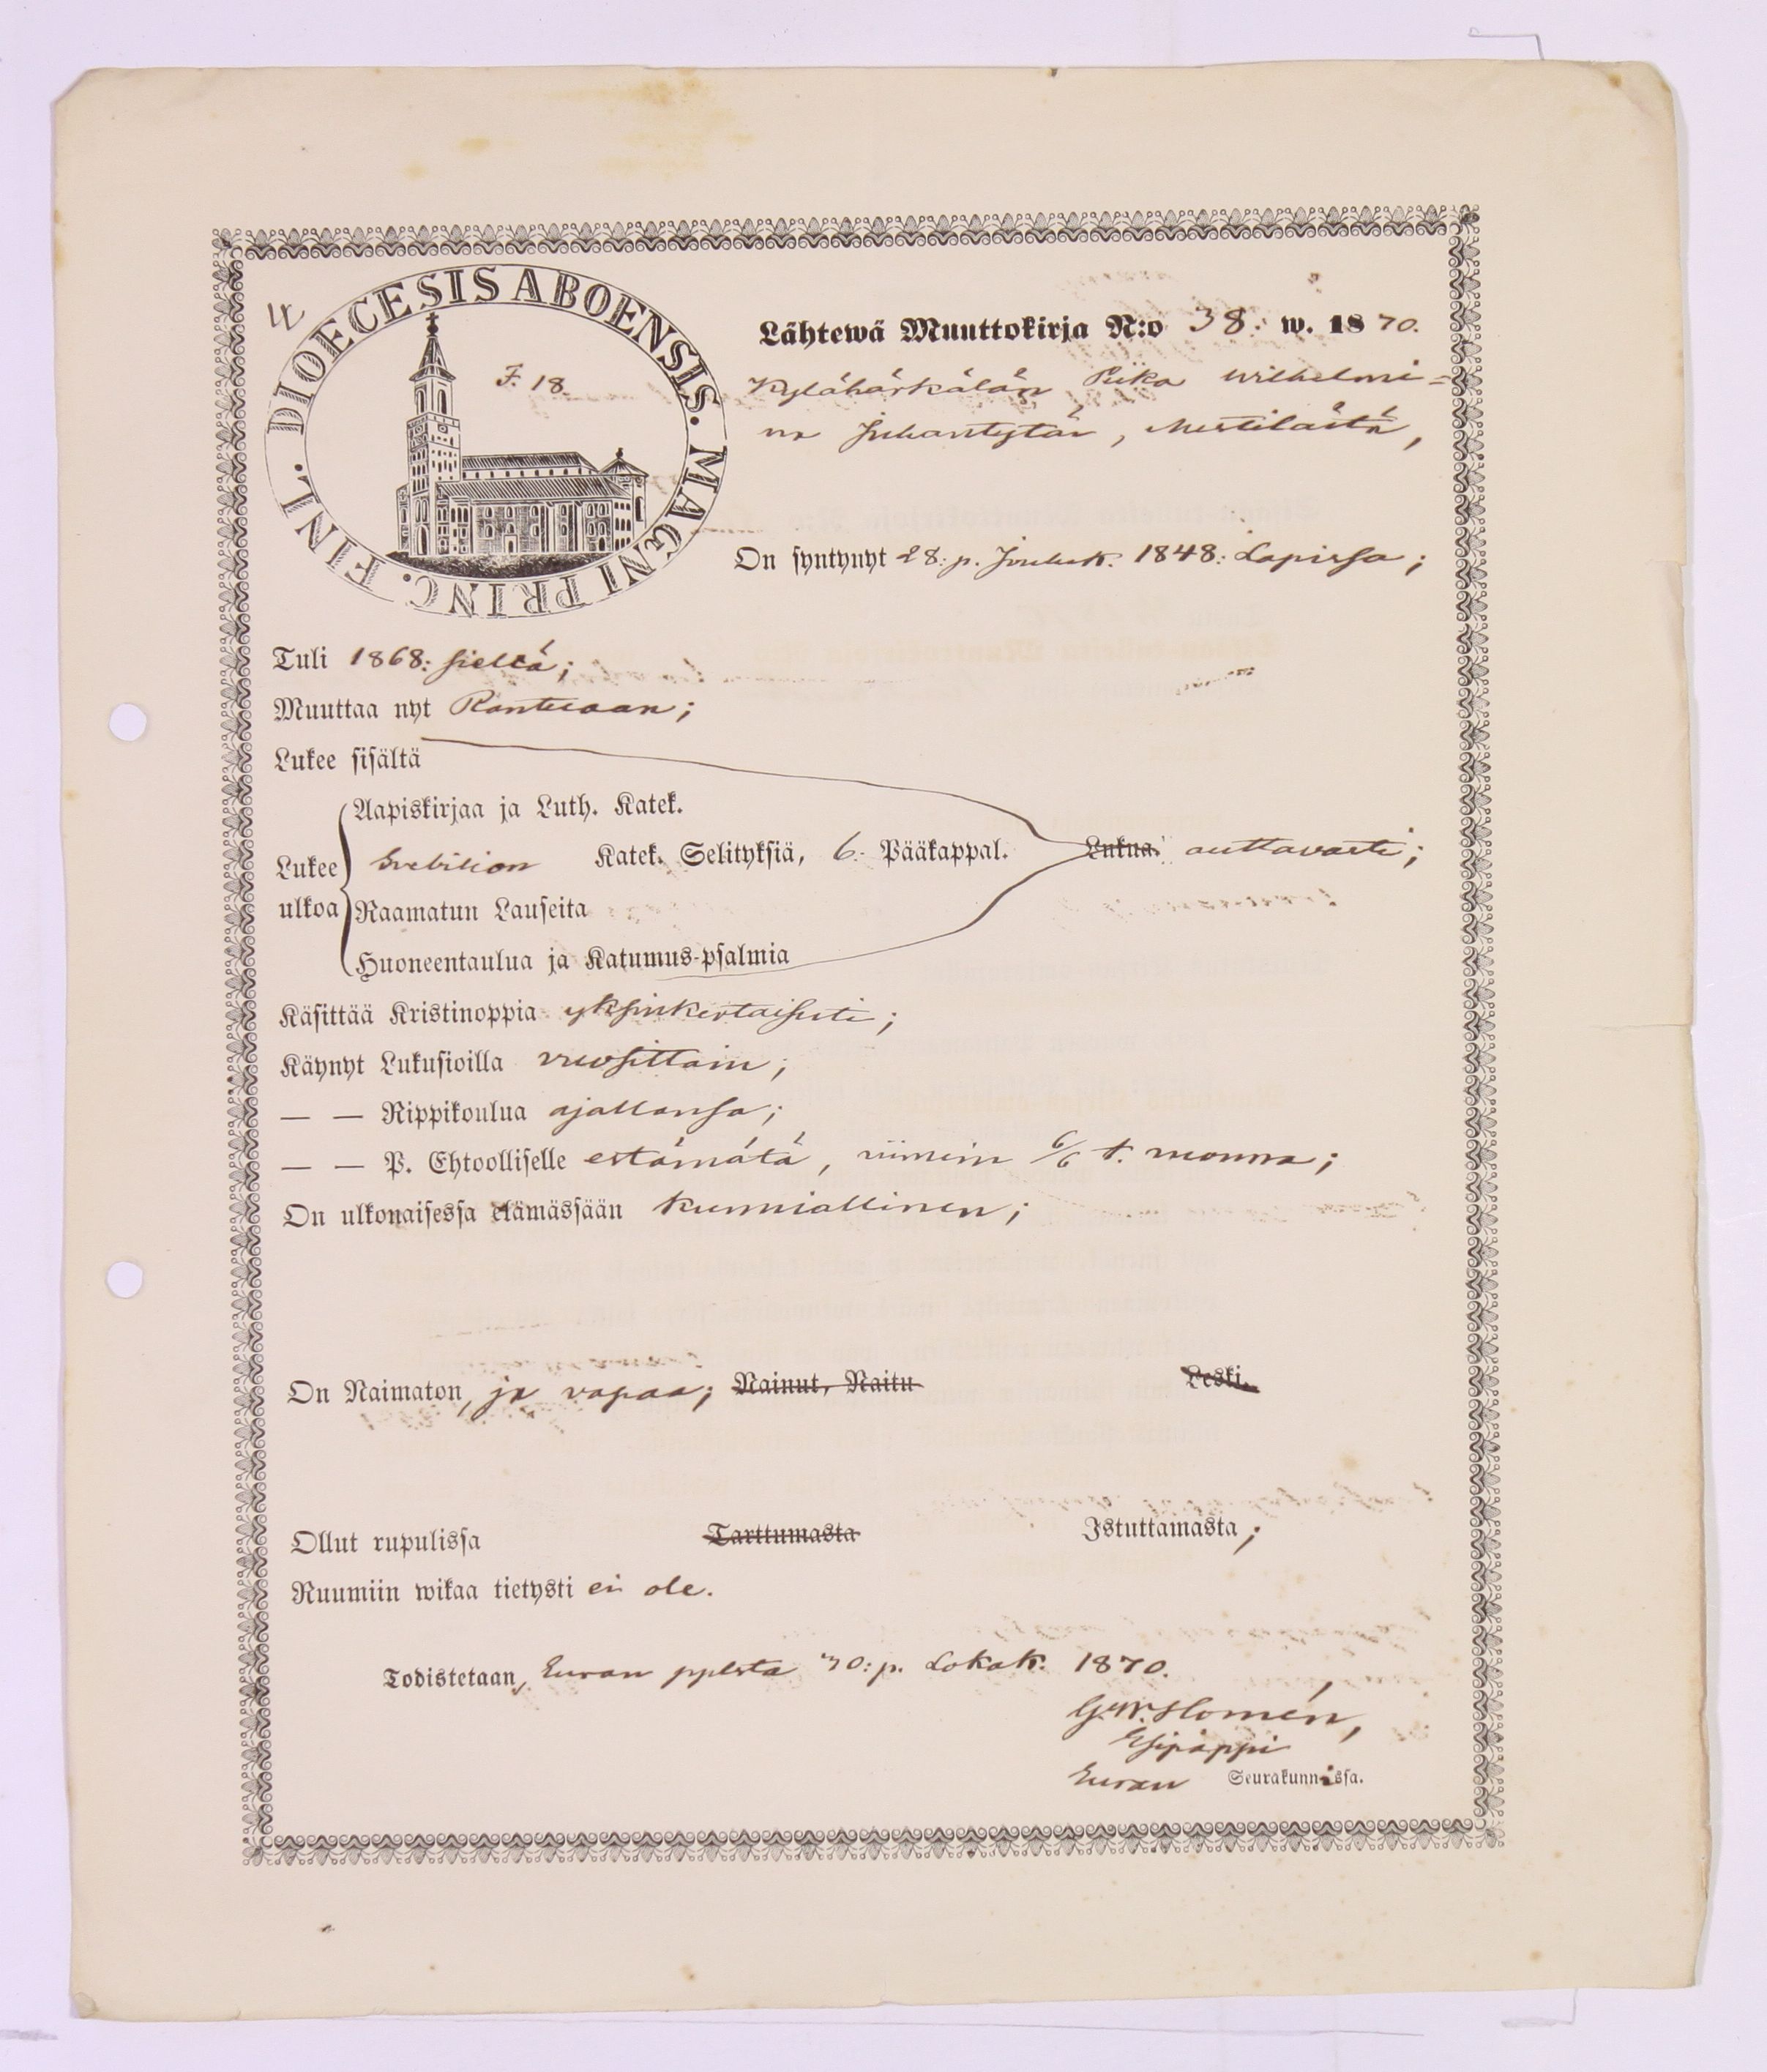 4
DIOECESIS ABOENSIS. MAGNI PRINC. FINL.
F. 18
Lähtewä Muuttokirja N:o 38. w. 1870.
Kylähärkälän Piika Wilhelmi=
na Juhantytär, Mestilästä,
On syntynyt 28: p. Jouluk. 1848: Lapissa;
Tuli 1868: sieltä;
Muuttaa nyt
Lukee sisältä
Lukee ulkoa
Aapiskirjaa ja Luth. Katek.
Svebilion Katek. Selityksiä, 6. Pääkappal. Lukua. auttavasti;
Raamatun Lauseita
Huoneentaulua ja Katumus-psalmia
Käsittää Kristinoppia yksinkertaisesti;
Käynyt Lukusioilla vuosittain;
— — Rippikoulua ajallansa;
— — P. Ehtoolliselle estämätä, viimein 6/6 t. vuonna;
On ulkonaisessa elämässään kunniallinen;
On Naimaton, ja vapaa; Nainut, Naitu Leski.
Ollut rupulissa Tarttumasta Istuttamasta;
Ruumiin wikaa tietysti ei ole.
Todistetaan, Euran pplsta 30: p. Lokak. 1870.
G. W. Homén,
Esipappi
Euran Seurakunnassa.